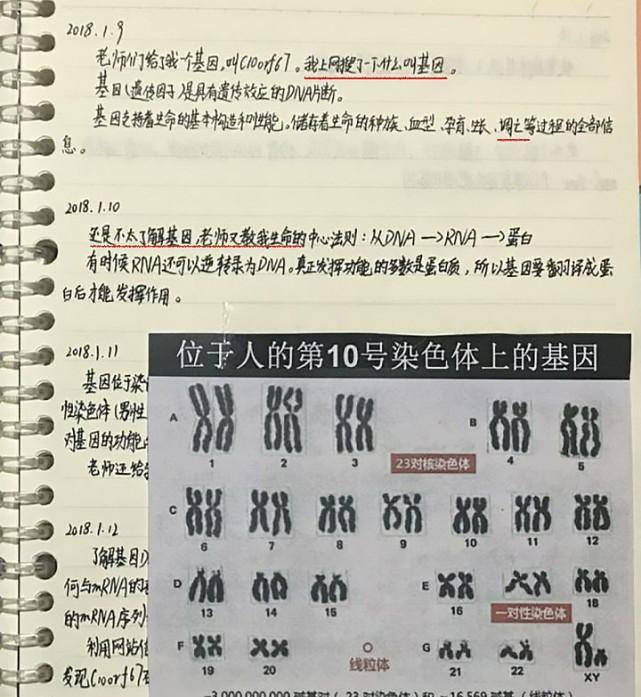 2018.1.9
老师们给了我一个基因,叫C10orf67。我上网搜了一下什么叫基因。
基因(遗传因子)是具有遗传效应的DNA片断。
基因支持着生命的基本构造和性能。储存着生命的种族、血型、孕育、生长、凋亡等过程的全部信
息。
2018.1.10
还是不太了解基因,老师又教我生命的中心法则:从DNA→RNA→蛋白
有时候RNA还可以逆转录为DNA。真正发挥功能的多数是蛋白质,所以基因要翻译成蛋
白后才能发挥作用。
2018.1.11
基因位于染
性染色体(男性
对基因的功能
老师还给
2018.1.12
了解基因D
何与mRNA的
的mRNA序列
利用网站
发现C10orf67
位于人的第10号染色体上的基因
A 1 2 3 B 4 5
23对核染色体
C 6 7 8 9 10 11 12
D 13 14 15 E 16 18
一对性染色体
F 19 20 线粒体 G 21 22 XY
~3,000,000,000 碱基对(23对染色体)和 ~16,569 碱基(线粒体)